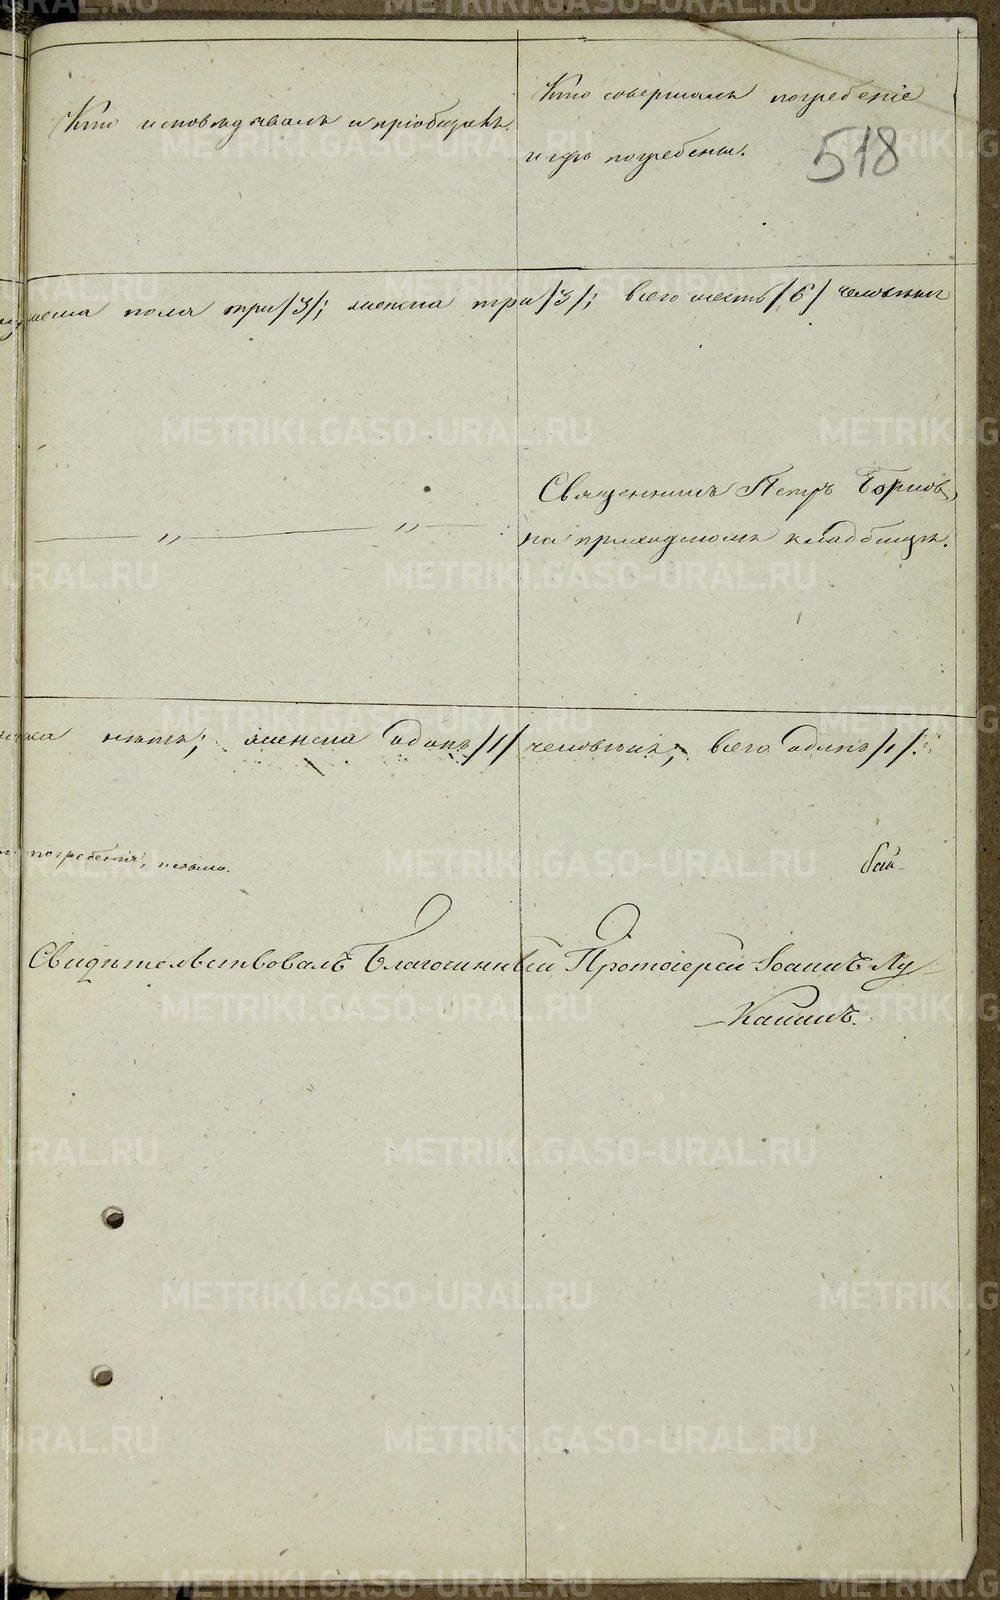 Кто исповѣдывалъ и пріобщалъ.
Кто совершалъ погребеніе
и гдѣ погребены.
518
пола три /3/; женска три /3/; всего шесть /6/ человѣкъ
Священникъ Петръ
на приходскомъ кладбищѣ.
нѣтъ; женска одинъ /1/ человѣкъ; всего одинъ /1/.
погребенія, не было.
Свидѣтельствовалъ Благочинный Протоіерей Іоаннъ Лу
кашинъ.
METRIKI.GASO-URAL.RU